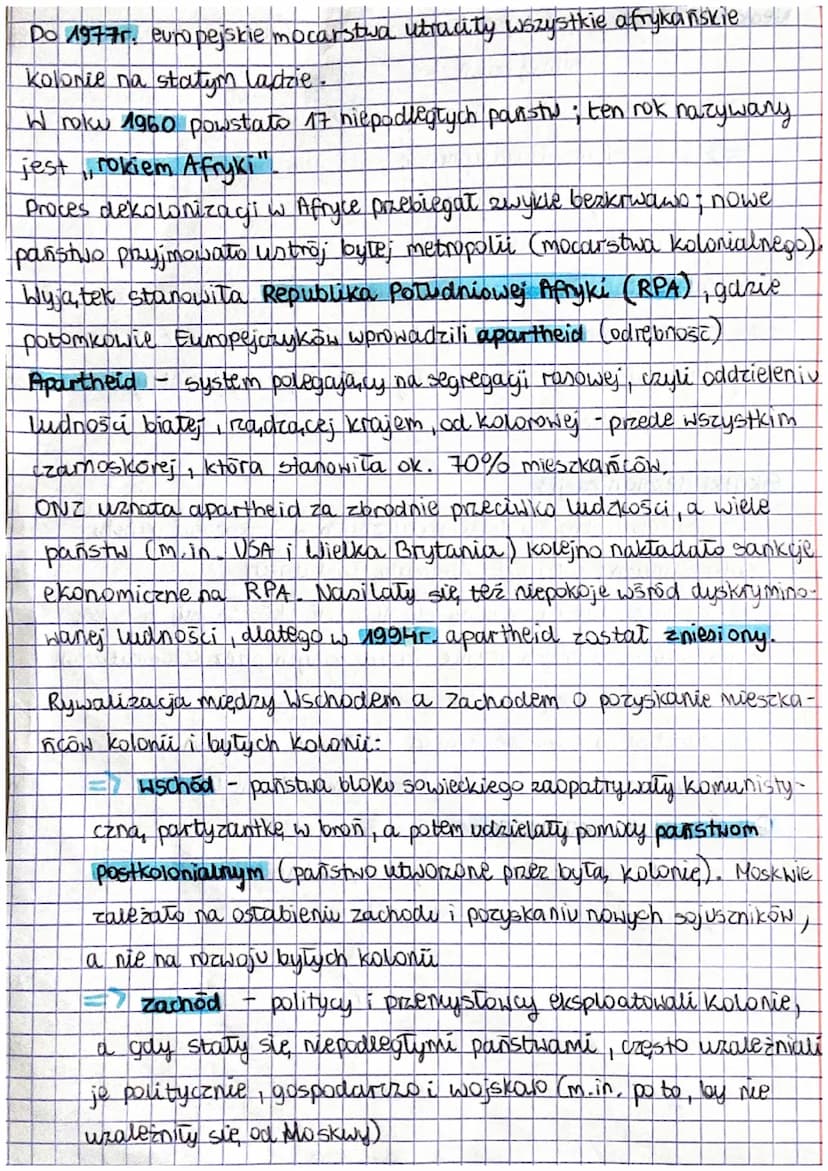 Do 1977r. europejskie mocarstwa utraciły wszystkie afrykańskie
kolonie na stałym lądzie.
W roku 1960 powstało 17 niepodległych państw ; ten rok nazywany
jest „rokiem Afryki".
Proces dekolonizacji w Afryce przebiegał zwykle bezkrwawo ; nowe
państwo przyjmowało ustrój byłej metropolii (mocarstwa kolonialnego).
Wyjątek stanowiła Republika Południowej Afryki (RPA), gdzie
potomkowie Europejczyków wprowadzili apartheid (odrębność)
Apartheid - system polegający na segregacji rasowej, czyli oddzieleniu
ludności białej, rządzącej krajem, od kolorowej - przede wszystkim
czarnoskórej, która stanowiła ok. 70% mieszkańców.
ONZ uznała apartheid za zbrodnie przeciwko ludzkości, a wiele
państw (m.in. USA i Wielka Brytania) kolejno nakładało sankcje
ekonomiczne na RPA. Nasilały się też niepokoje wśród dyskrymino-
wanej ludności, dlatego w 1994r. apartheid został zniesiony.
Rywalizacja między Wschodem a Zachodem o pozyskanie mieszka-
ńców kolonii i byłych kolonii:
=> wschód - państwa bloku sowieckiego zaopatrywały komunisty-
czną partyzantkę w broń, a potem udzielały pomocy państwom
postkolonialnym (państwo utworzone przez byłą kolonię). Moskwie
zależało na osłabieniu zachodu i pozyskaniu nowych sojuszników,
a nie na rozwoju byłych kolonii
=> zachód - politycy i przemysłowcy eksploatowali kolonie,
a gdy stały się niepodległymi państwami, często uzależniali
je politycznie, gospodarczo i wojskowo (m.in. po to, by nie
uzależniły się od Moskwy)